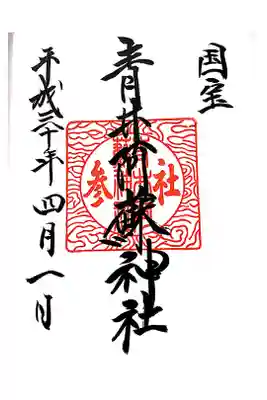 国宝
青井阿蘇神社
参社
平成三十年四月一日